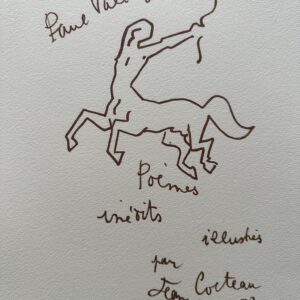 Paul
Poèmes
inédits
illustrés
par
Jean Cocteau